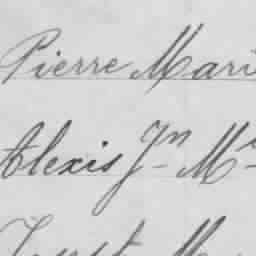 Pierre Mari
Alexis Jn M